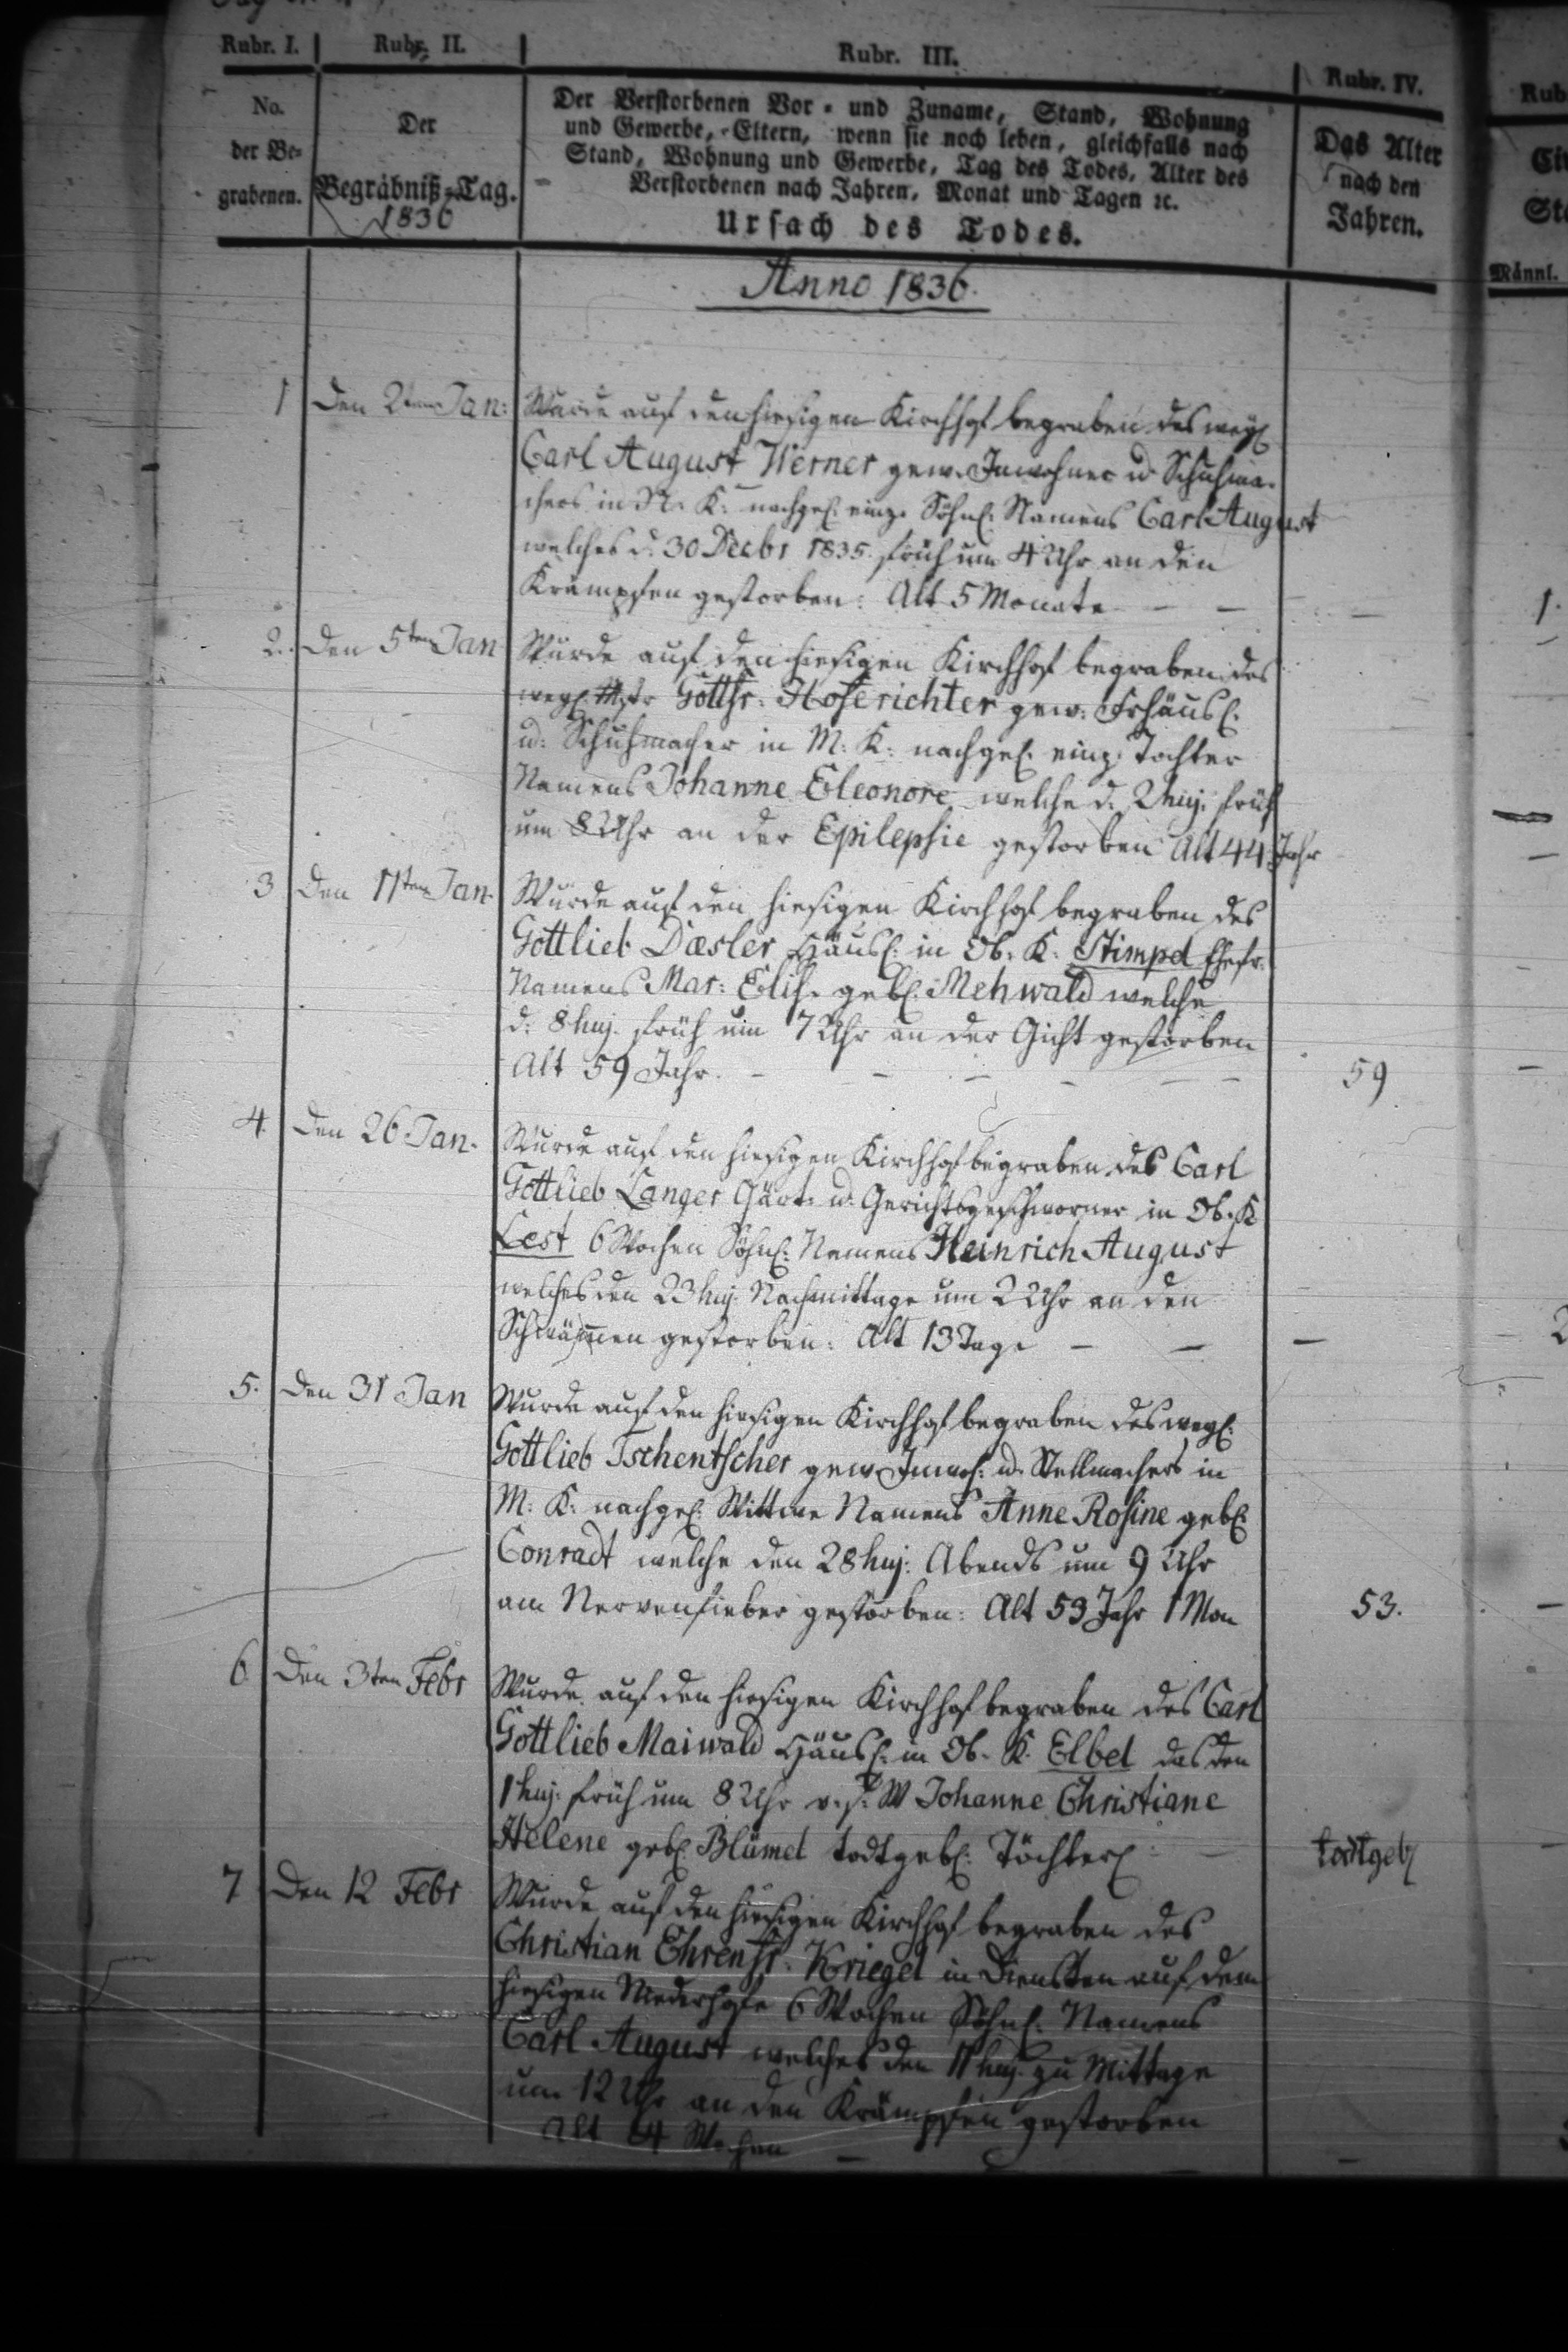 Rubr. I. Rubr. II. Rubr. III. Rubr. IV.
No.
der Be-
grabenen.
Der
Begräbniß-Tag.
1836
Der Verstorbenen Vor- und Zuname, Stand, Wohnung
und Gewerbe, Eltern, wenn sie noch leben, gleichfalls nach
Stand, Wohnung und Gewerbe, Tag des Todes, Alter des
Verstorbenen nach Jahren, Monat und Tagen ꝛc.
Ursach des Todes.
Das Alter
nach den
Jahren.
Männl.
Anno 1836.
1 Den 2ten Jan: Wurde auf den hiesigen Kirchhof begraben des weyl
Carl August Werner gew. Inwohner u. Schuhma-
chers in N. K. nachgel. einz. Söhnl. Namens Carl August
welches d. 30 Decbr 1835. früh um 4 Uhr an den
Krämpfen gestorben: Alt 5 Monate — — — 1.
2. Den 5ten Jan Wurde auf den hiesigen Kirchhof begraben des
weyl. Mstr Gottfr: Hoferichter gew: Frhäusl.
u: Schuhmacher in M: K: nachgel. einz. Tochter
Namens Johanne Eleonore welche d. 2 huj. früh
um 8 Uhr an der Epilepsie gestorben Alt 44 Jahr
3 Den 11ten Jan. Wurde auf den hiesigen Kirchhof begraben des
Gottlieb Dæsler Häusl: in Ob. K: Stimpel Ehefr.
Namens Mar: Elis. gebl. Mehwald welche
d. 8 huj. früh um 7 Uhr an der Gicht gestorben
Alt 59 Jahr. — — — — — — 59 —
4. Den 26 Jan. Wurde auf den hiesigen Kirchhof begraben des Carl
Gottlieb Langer Gärt- u. Gerichtsgeschworner in Ob. K
Lest 6 Wochen Söhnl: Namens Heinrich August
welches den 23 huj. Nachmittage um 2 Uhr an den
Schwämmen gestorben: Alt 13 Tage — — — 2
5. Den 31 Jan Wurde auf den hiesigen Kirchhof begraben des weyl:
Gottlieb Tschentscher gew. Inwoh: u. Stellmachers in
M: K: nachgel: Wittwe Namens Anne Rosine gebl:
Conradt welche den 28 huj: Abends um 9 Uhr
am Nervenfieber gestorben: Alt 53 Jahr 1 Mon 53. —
6 Den 3ten Febr Wurde auf den hiesigen Kirchhof begraben des Carl
Gottlieb Maiwald Häusl: in Ob. K. Elbel das den
1 huj: früh um 8 Uhr v. s. W Johanne Christiane
Helene gebl. Blümel todtgebl: Töchterl: — todtgebl —
7 Den 12 Febr Wurde auf den hiesigen Kirchhof begraben des
Christian Ehrenfr: Kriegel in Diensten auf dem
hiesigen Niederhofe 6 Wochen Söhnl: Namens
Carl August welches den 11 huj. zu Mittage
um 12 Uhr an den Krämpfen gestorben
Alt 4 Wochen — — —